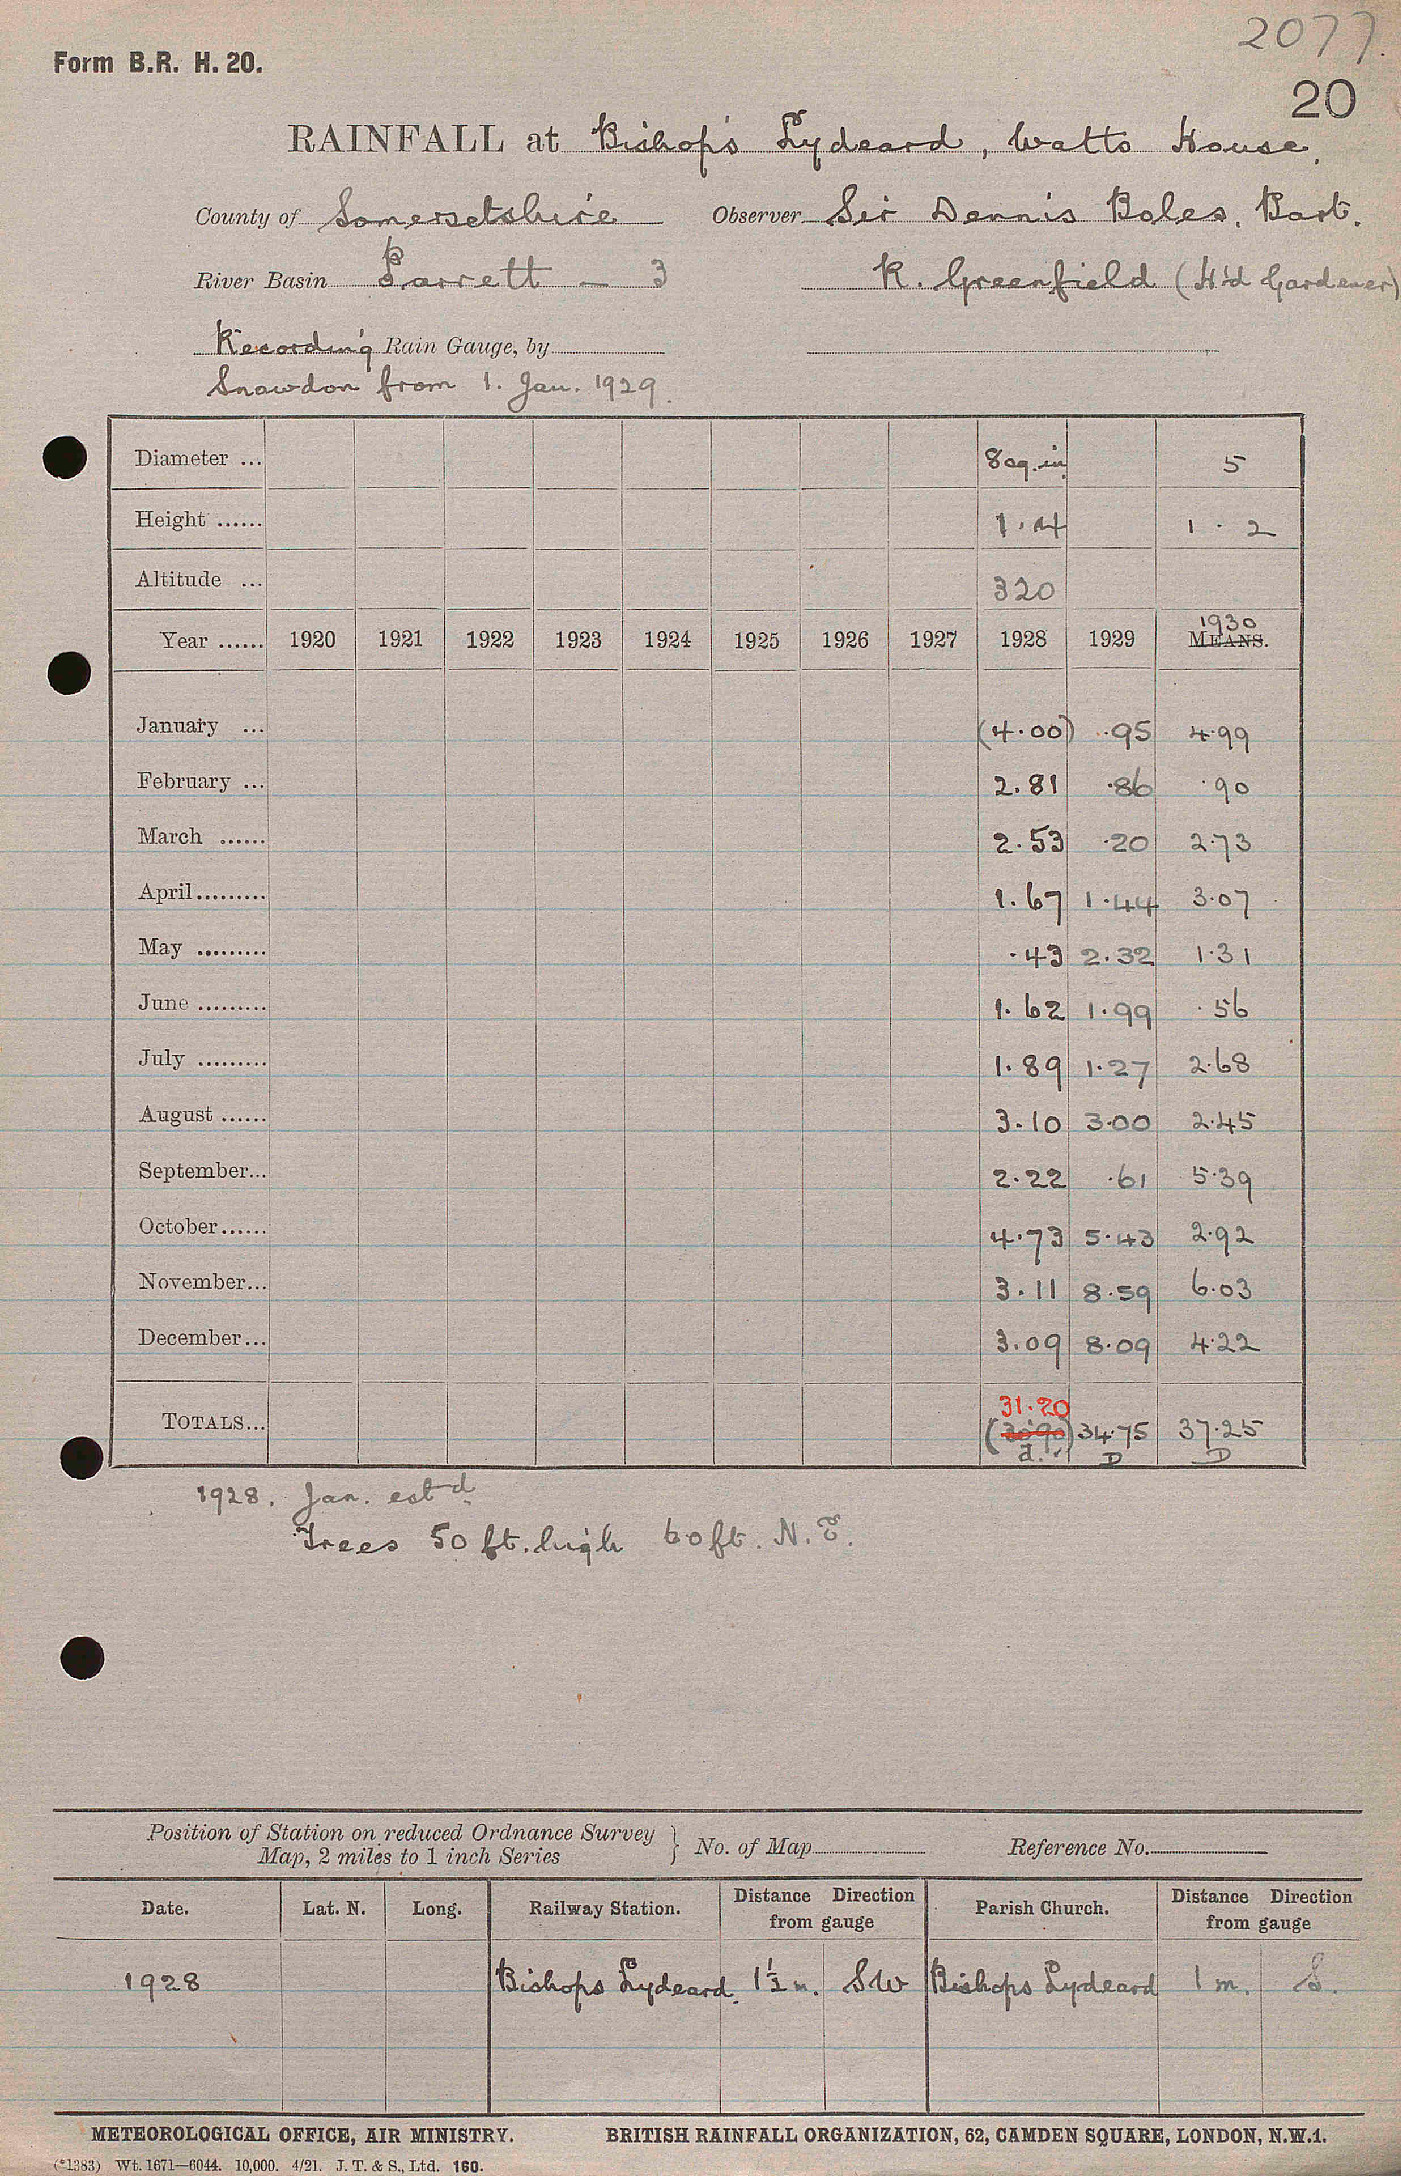 2077.
Form B.R. H. 20.
20
RAINFALL at Bishop's Lydeard, Watts House.
County of Somersetshire Observer Sir Dennis Boles, Bart.
River Basin Parrett — 3 R. Greenfield (H'd Gardener)
Recording Rain Gauge, by
Snowdon from 1. Jan. 1929.
Diameter ... 8 sq. in. 5
Height ...... 1.4 1 . 2
Altitude ... 320
Year ...... 1920 1921 1922 1923 1924 1925 1926 1927 1928 1929 1930 MEANS.
January ... (4.00) .95 4.99
February ... 2.81 .86 .90
March ...... 2.53 .20 2.73
April......... 1.67 1.44 3.07
May ......... .43 2.32 1.31
June ......... 1.62 1.99 .56
July ......... 1.89 1.27 2.68
August ...... 3.10 3.00 2.45
September... 2.22 .61 5.39
October...... 4.73 5.43 2.92
November... 3.11 8.59 6.03
December... 3.09 8.09 4.22
31.20
TOTALS... (30.90) 34.75 37.25
a. D D
1928. Jan. est'd.
Trees 50 ft. high 60 ft. N.E.
Position of Station on reduced Ordnance Survey
Map, 2 miles to 1 inch Series } No. of Map Reference No.
Date. Lat. N. Long. Railway Station. Distance Direction from gauge Parish Church. Distance Direction from gauge
1928 Bishops Lydeard. 1½ m. SW Bishops Lydeard 1 m. S.
METEOROLOGICAL OFFICE, AIR MINISTRY. BRITISH RAINFALL ORGANIZATION, 62, CAMDEN SQUARE, LONDON, N.W.1.
(*1383) Wt. 1671—6044. 10,000. 4/21. J. T. & S., Ltd. 160.